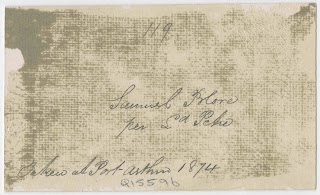 119
Samuel Blore
per Ld Petre
Taken at Port Arthur 1874
Q15596